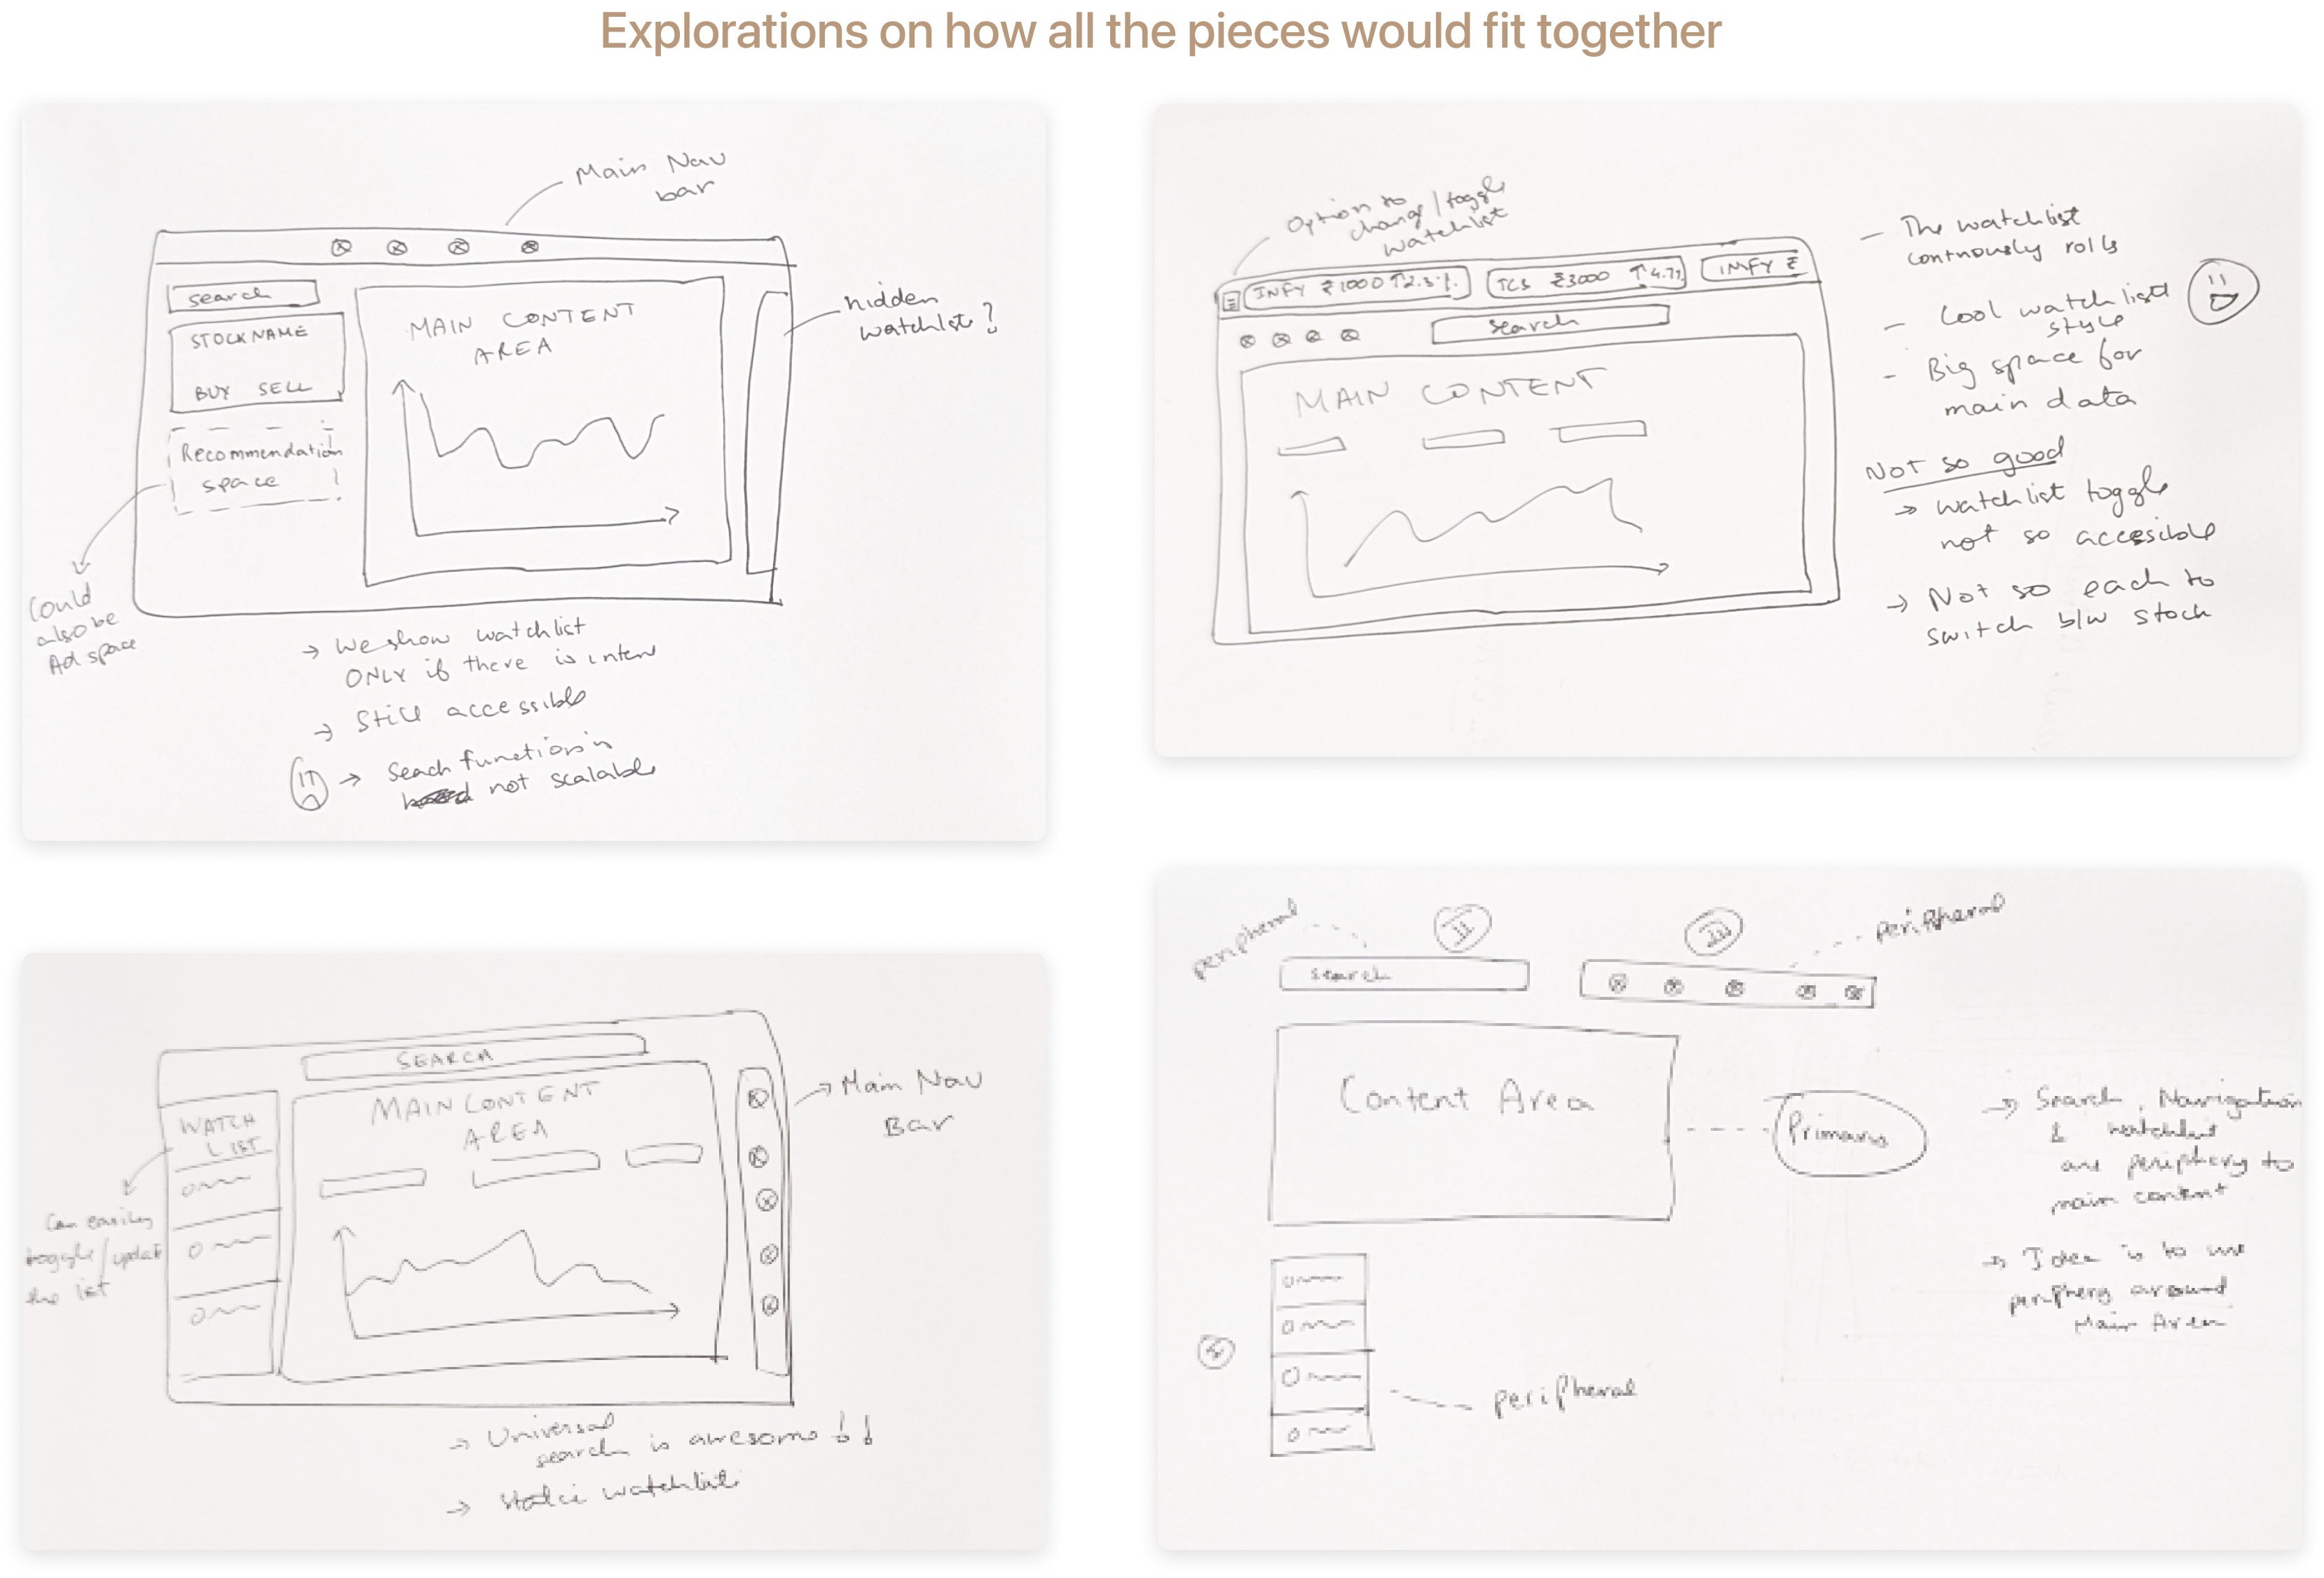 Explorations on how all the pieces would fit together
Main Nav
bar
search
STOCKNAME
BUY SELL
Recommendation
space
MAIN CONTENT
AREA
hidden
watchlist?
Could
also be
Ad space
→ We show watchlist
ONLY if there is inten
→ Still accessible
→ Seach function is
not scalable
Option to
change/toggle
watchlist
INFY ₹1000 ↑2.3%
TCS ₹3000 ↑4.7%
INFY ₹
search
MAIN CONTENT
- The watchlist
continously rolls
- Cool watchlist
style
- Big space for
main data
Not so good
→ watchlist toggle
not so accesible
→ Not so each to
switch b/w stock
SEARCH
WATCH
LIST
MAIN CONTENT
AREA
Main Nav
Bar
Can easily
toggle/updat
the list
→ Universal
search is awesome !!
→ Static watchlist
peripheral
II
search
III
peripheral
Content Area
Primary
→ Search, Navigation
& watchlist
are periphery to
main content
→ Idea is to use
periphery around
Main Area
peripheral